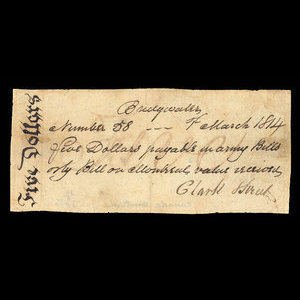 Five Dollars
Bridgwater
Number 58 --- March 1814
five Dollars payable in army Bills
or by Bill on Montreal value received
Clark Street